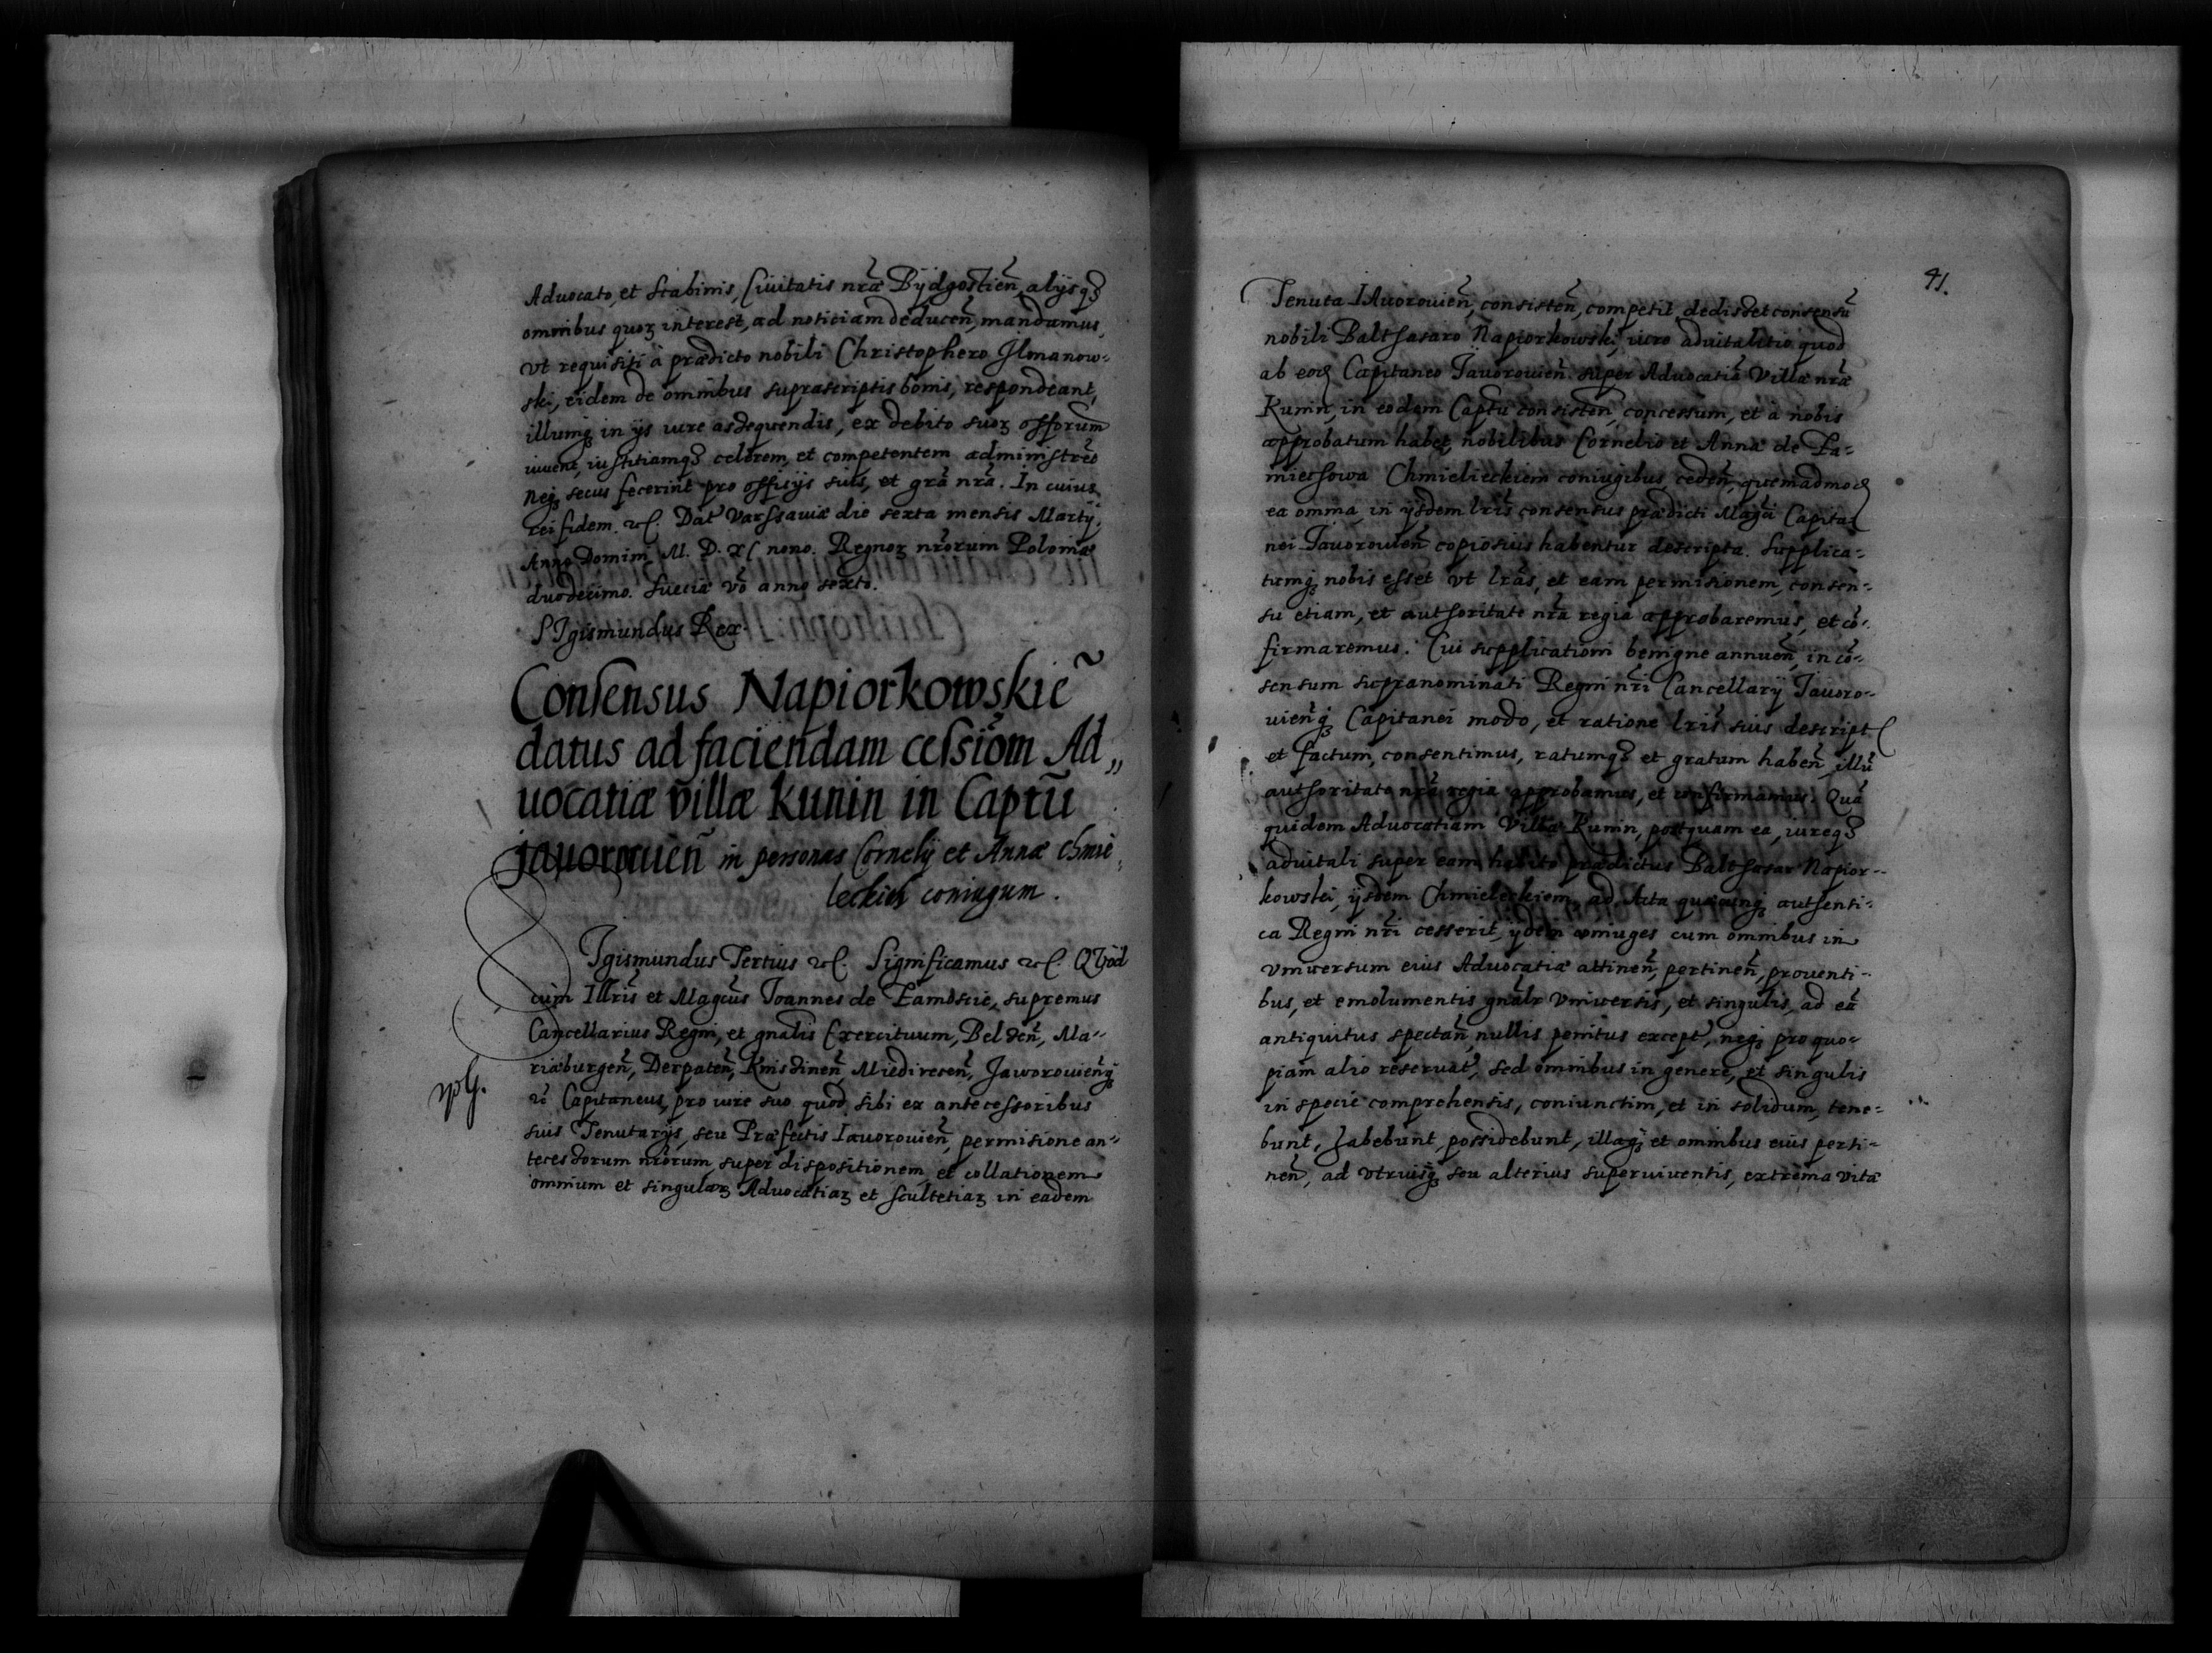 Advocato, et Scabinis, Civitatis nrã Bydgostien̄ alysqꝫ
omnibus quoꝝ interest, ad noticiam deducen̄, mandamus,
vt requisiti à prædicto nobili Christophero Ilmanow-
ski, eidem de omnibus suprascriptis bonis, respondeant,
illumqꝫ in ijs iure assequendis, ex debito suoꝝ offorum
iuvent, iustitiamqꝫ celerem, et competentem administren̄
Neqꝫ secus fecerint pro officijs suis, et grã nrã. In cuius
rei fidem. etc. Dat Varssaviæ die sexta mensis Martij.
Anno Domini M. D. XC nono. Regnoꝝ nrõrum Poloniæ
duodecimo. Sueciæ võ anno sexto.
SIgismundus Rex.
Consensus Napiorkowskiẽ
datus ad faciendam cessiõm Ad„
uocatiæ villæ Kunin in Captũ
jauorouien̄ in personas Cornelij et Annæ Chmie
leckich coniugum.
SIgismundus Tertius etc. Significamus etc. Quod
cum Illr̃is et Magcũs Joannes de Zamoscie, supremus
Cancellarius Regni, et gnãlis Exercituum, Belzen̄, Ma-
riæburgen̄, Derpaten̄, Knisdinen̄, Miedirecen̄, Jaworouien̄qꝫ
etc Capitaneus, pro iure suo quod sibi ex antecessoribus
suis Tenutarijs, seu Præfectis Iauorouien̄, permisione an-
tecessorum nrõrum, super dispositionem, et collationem
omnium et singulaꝝ Advocatiaꝝ et scultetiaꝝ in eadem
41.
Tenuta IAuorouien̄, consisten̄, competit, dedisset consensũ
nobili Balthasaro Napiorkowski, iure advitalitio quod
ab eod Capitaneo Iauorouien̄ super Advocatiã Villæ nrã
Kunin, in eodem Captũ consisten̄, concessum, et à nobis
approbatum habet, nobilibus Cornelio et Annæ de Pa-
miechowa Chmielieckiem coniugibus, ceden̄, quemadmod
ea omnia in ijsdem lris̃ consensus prædicti Magci Capita
nei Iauorouien̄ copiosius habentur descripta. Supplica-
tumqꝫ nobis esset vt lrãs, et eam permisionem, consen-
su etiam, et authoritate nrã regia approbaremus, et cõ-
firmaremus. Cui supplicationi benigne annuen̄, in cõ-
sensum supranominati Regni nrĩ Cancellarij Iauoro-
uien̄qꝫ Capitanei modo, et ratione lris̃ suis descript
et factum, consentimus, ratumqꝫ et gratum haben̄ illũ
authoritate nrã regia approbamus, et confirmamus. Quã
quidem Advocatiam Villæ Kunin, postquam ea, iureqꝫ
advitali super eam habito prædictus Balthasar Napior-
kowski, ijsdem Chmieleckiem, ad Acta quæcunqꝫ authenti-
ca Regni nrĩ cesserit, ijdem coniuges cum omnibus in
vniversum eius Advocatiæ attinen̄, pertinen̄, proventi-
bus, et emolumentis gnãlr vniversis, et singulis, ad eã
antiquitus spectan̄, nullis penitus except, neqꝫ pro quo-
piam alio reservat, sed omnibus in genere, et singulis
in specie comprehensis, coniunctim, et in solidum, tene-
bunt, habebunt, possidebunt, illaqꝫ et omnibus eius perti-
nen̄, ad vtriusqꝫ seu alterius superviventis, extrema vitæ